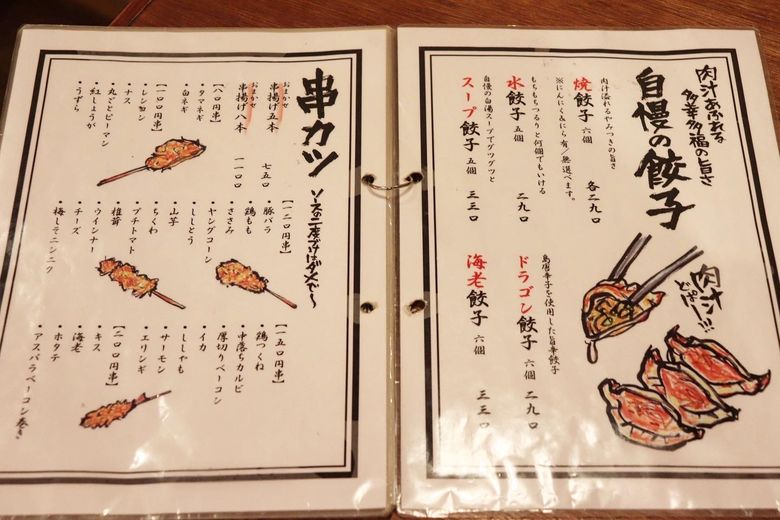 肉汁あふれる
多幸多福の旨さ
自慢の餃子
肉汁溢れるやみつきの旨さ
焼餃子 六個 各二九〇
※にんにく&にら有/無選べます。
もちもちつるりと何個でもいける
水餃子 五個 二九〇
自慢の白湯スープでグツグツと
スープ餃子 五個 三三〇
肉汁ドぱー!!!
島唐辛子を使用した旨辛餃子
ドラゴン餃子 六個 二九〇
海老餃子 六個 三三〇
串カツ
ソースの二度づけはダメで〜
おまかせ
串揚げ五本 七五〇
おまかせ
串揚げ八本 一一〇〇
【八〇円串】
・タマネギ
・白ネギ
【一〇〇円串】
・レン根
・ナス
・丸ごとピーマン
・紅しょうが
・うずら
【一二〇円串】
・豚バラ
・鶏もも
・ささみ
・ヤングコーン
・ししとう
・山芋
・ちくわ
・プチトマト
・椎茸
・ウインナー
・チーズ
・梅しそニンニク
【一五〇円串】
・鶏つくね
・中落ちカルビ
・厚切りベーコン
・イカ
・ししゃも
・サーモン
・エリンギ
【二〇〇円串】
・キス
・海老
・ホタテ
・アスパラベーコン巻き